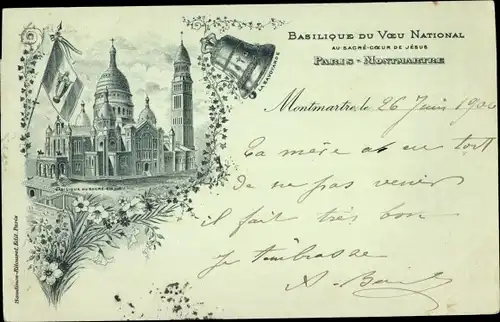 BASILIQUE DU VŒU NATIONAL
AU SACRÉ-CŒUR DE JÉSUS
PARIS - MONTMARTRE
LA SAVOYARDE
Montmartre, le 26 Juin 1900
Ta mère a eu tort
de ne pas venir
il fait très bon
Je t'embrasse
A.
BASILIQUE DU SACRÉ-CŒUR
Édit. Paris